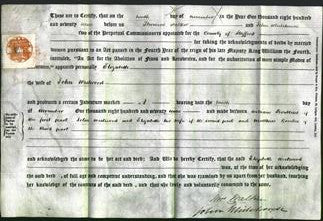 These are to Certify, that on the tenth day of November in the Year One thousand eight hundred
and seventy before us Thomas Walker and John Whitehouse
two of the Perpetual Commissioners appointed for the County of Stafford
for taking the acknowledgments of deeds by married
women pursuant to an Act passed in the Fourth Year of the reign of his late Majesty King William the Fourth,
intituled, "An Act for the Abolition of Fines and Recoveries, and for the substitution of more simple Modes
of Assurance," appeared personally Elizabeth
the wife of John
and produced a certain Indenture marked A bearing date the tenth
day of November One thousand eight hundred and seventy and made between
of the first part John and Elizabeth his wife of the second part and Matthew
of the third part
and acknowledged the same to be her act and deed: And We do hereby Certify, that the said Elizabeth
was, at the time of her acknowledging
the said deed, of full age and competent understanding, and that she was examined by us apart from her husband, touching
her knowledge of the contents of the said deed, and that she freely and voluntarily consented to the same.
Walker
John Whitehouse